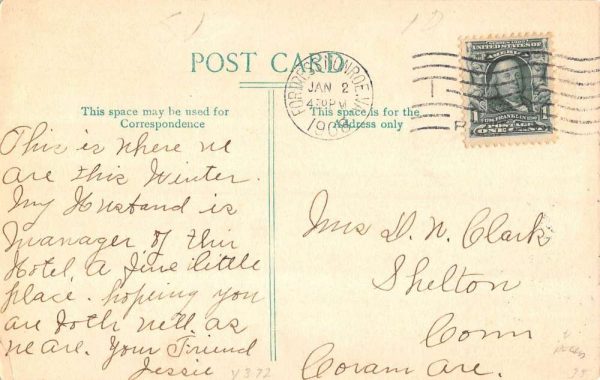 POST CARD
This space may be used for
Correspondence
This space is for the
Address only
FORTRESS MONROE, VA.
JAN 2
4-PM
SERIES 1902
UNITED STATES OF AMERICA
1
1
FRANKLIN
ONE CENT
This is where we
are this Winter.
My Husband is
manager of this
Hotel, a fine little
place. hoping you
are both well. as
we are. Your Friend
Jessie
Mrs D. N. Clark
Shelton
Conn
Coram Ave.